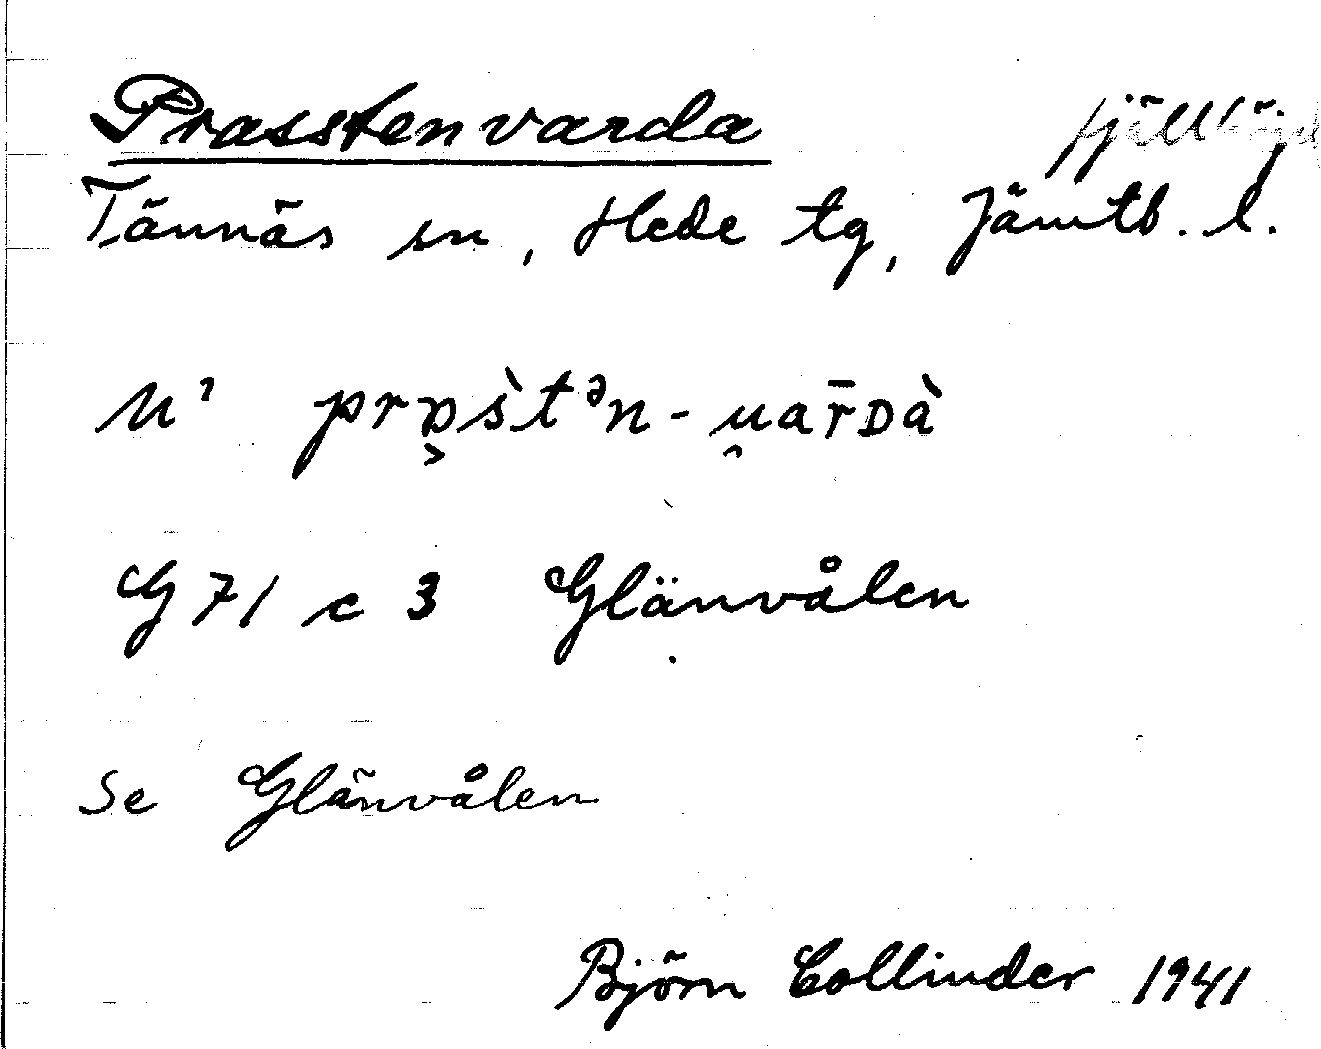 Prasstenvarda fjällhöjd
Tännäs sn, Hede tg, Jämtb. l.
U' prɒ̭št ᵊn - u̯ar̄ᴅà
G 71 c 3 Glänvålen
Se Glänvålen
Björn Collinder 1941